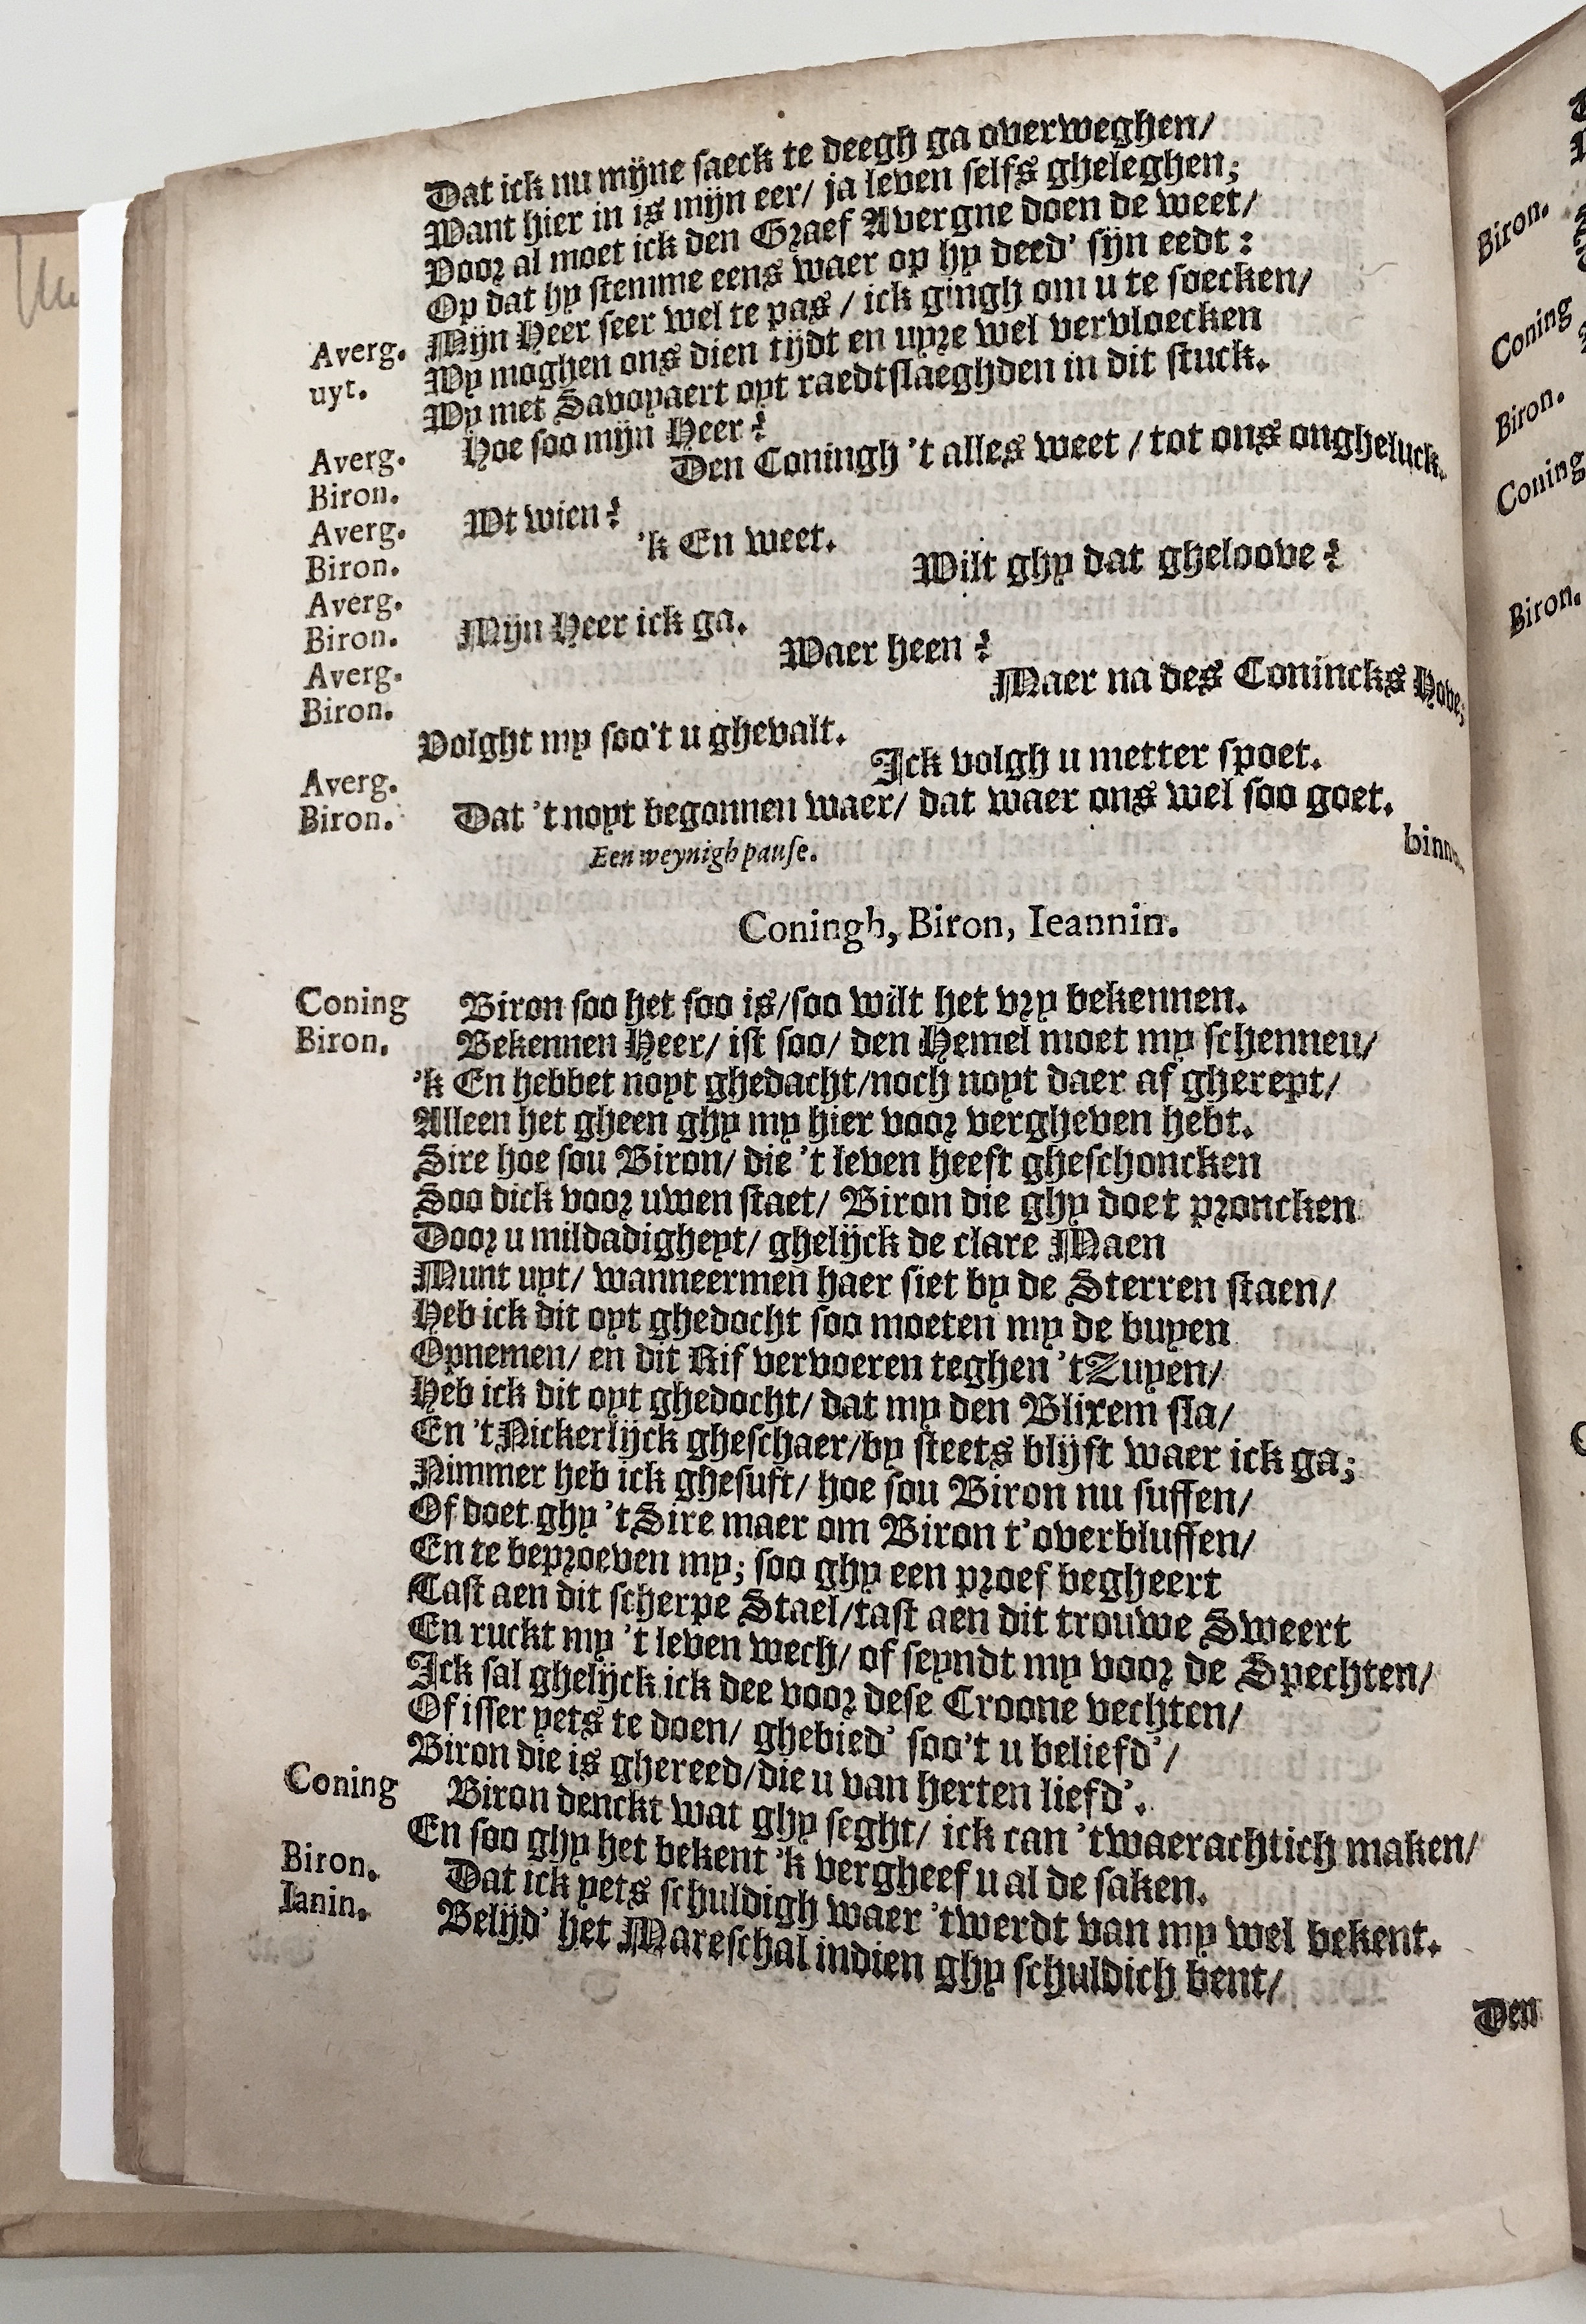 Dat ick nu mijne saeck te deegh ga overweghen/
Want hier in is mijn eer/ ja leven selfs gheleghen;
Voor al moet ick den Graef Avergne doen de weet/
Op dat hy stemme eens waer op hy deed' sijn eedt:
Averg. uyt. Mijn Heer seer wel te pas / ick gingh om u te soecken/
Wy moghen ons dien tijdt en uyre wel vervloecken
Wy met Savoyaert oyt raedtslaeghden in dit stuck.
Averg. Hoe soo mijn Heer?
Biron. Den Coningh 't alles weet / tot ons ongheluck.
Averg. Wt wien?
Biron. 'k En weet.
Averg. Wilt ghy dat gheloove?
Biron. Mijn Heer ick ga.
Averg. Waer heen?
Biron. Maer na des Conincks Hove;
Volght my soo't u ghevalt.
Averg. Ick volgh u metter spoet.
Biron. Dat 't noyt begonnen waer/ dat waer ons wel soo goet.
binn
Een weynigh pause.
Coningh, Biron, Ieannin.
Coning Biron soo het soo is/soo wilt het vry bekennen.
Biron. Bekennen Heer/ ist soo/ den Hemel moet my schenneu/
'k En hebbet noyt ghedacht/noch noyt daer af gherept/
Alleen het gheen ghy my hier voor vergheven hebt.
Sire hoe sou Biron/ die 't leven heeft gheschoncken
Soo dick voor uwen staet/ Biron die ghy doet proncken
Door u mildadigheyt/ ghelijck de clare Maen
Munt uyt/ wanneermen haer siet by de Sterren staen/
Heb ick dit oyt ghedocht soo moeten my de buyen
Opnemen/ en dit Rif vervoeren teghen 't Zuyen/
Heb ick dit oyt ghedocht/ dat my den Blixem sla/
En 't Nickerlijck gheschaer/by steets blijft waer ick ga;
Nimmer heb ick ghesuft/ hoe sou Biron nu suffen/
Of doet ghy 't Sire maer om Biron t'overbluffen/
En te beproeven my; soo ghy een proef begheert
Tast aen dit scherpe Stael/tast aen dit trouwe Sweert
En ruckt my 't leven wech/ of seyndt my voor de Spechten/
Ick sal ghelijck ick dee voor dese Croone vechten/
Of isser yets te doen/ ghebied' soo't u beliefd'/
Biron die is ghereed/die u van herten liefd'.
Coning Biron denckt wat ghy seght/ ick can 't waerachtich maken/
En soo ghy het bekent 'k vergheef u al de saken.
Biron. Dat ick yets schuldigh waer 't werdt van my wel bekent.
Ianin. Belijd' het Mareschal indien ghy schuldich bent/
Den
Biron.
Coning
Biron.
Coning
Biron.